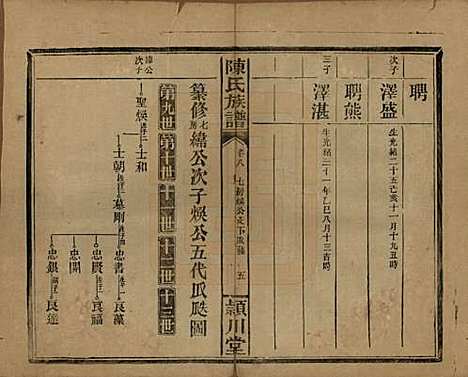 聘
次子
澤盛
生光緒二十五己亥十一月十九丑時
聘熊
三子
澤湛
生光緒三十一年乙巳八月十三吉時
陳氏族譜
卷八
五
潁川堂
纂修七房緯公次子煥公五代瓜瓞圖
第九世 第十世 十一世 十二世 十三世
緯公次子
聖煥
士和
士朝
慕剛
忠書
良藻
忠賢
良福
忠開
忠銀
良進